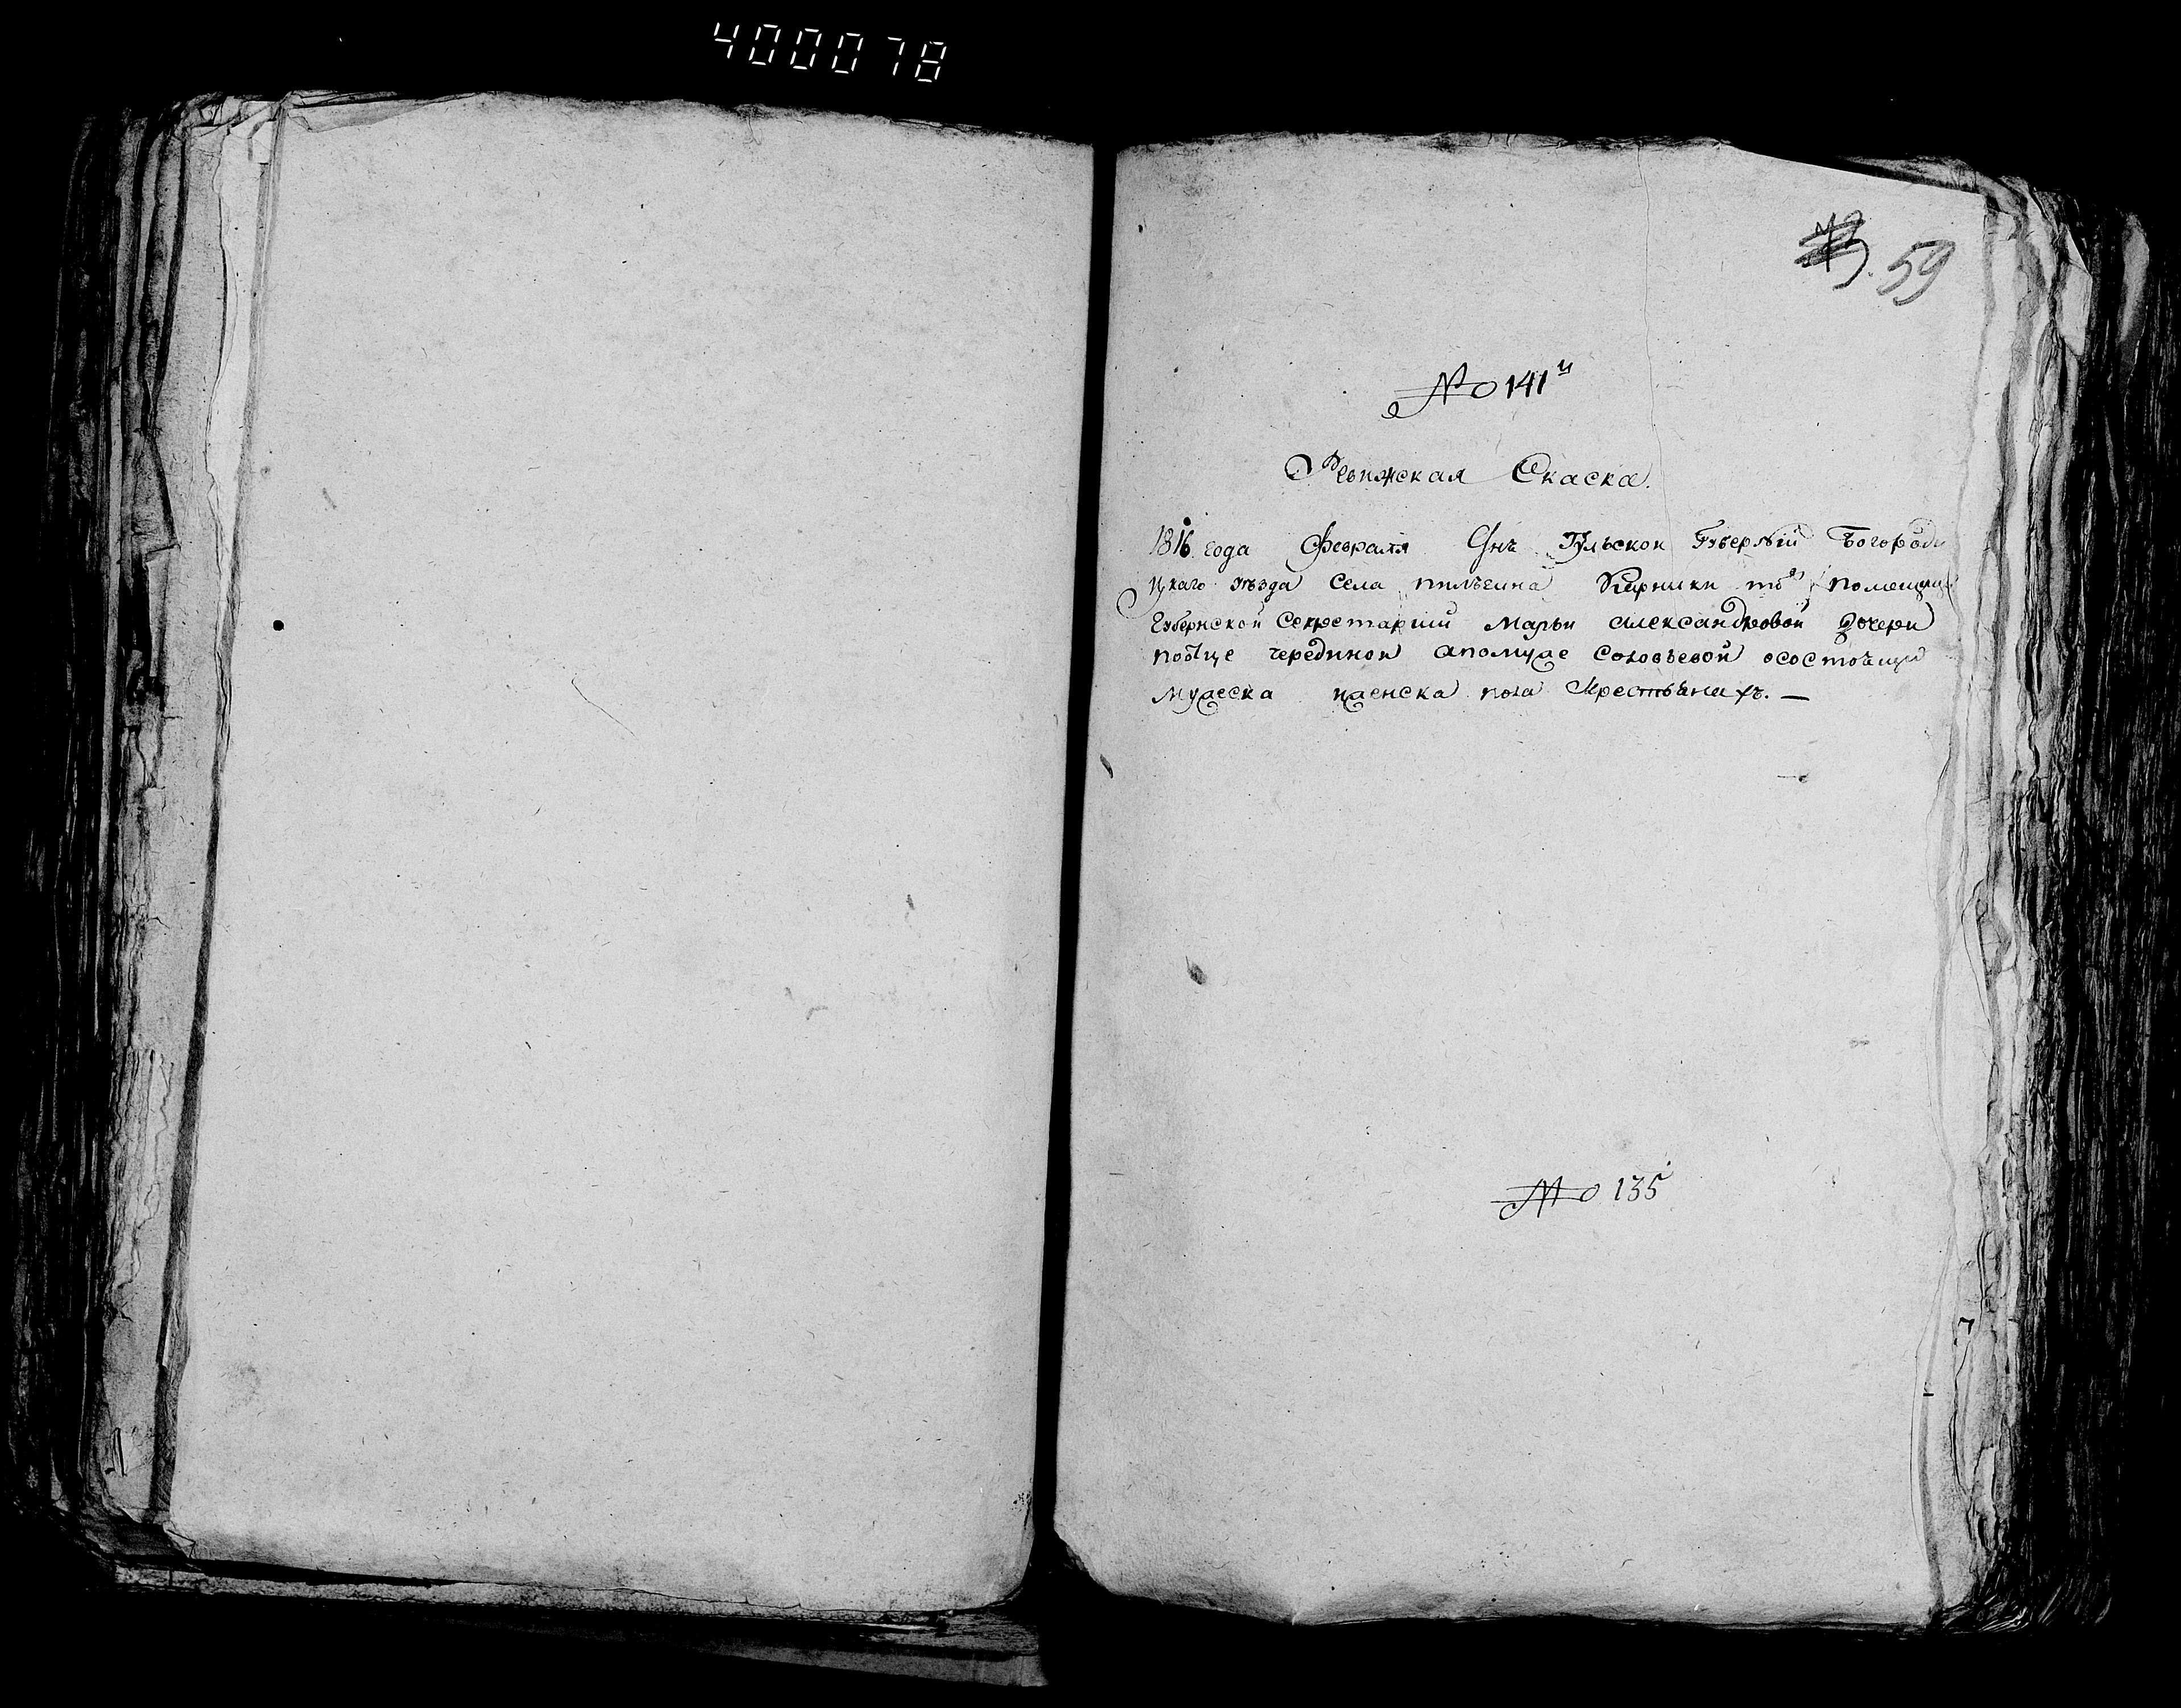 400078
59
№ 141й
Ревижская Скаска.
1816 года февраля дня Тульской Губернии Богороди
цкаго уезда села Кирники тож помещицы
Губернской Секретарши Марьи Александровой дочери
поотце чередимой апомуже соловьевой осостоящи
мужеска иженска пола Крестьянахъ. —
№ 135